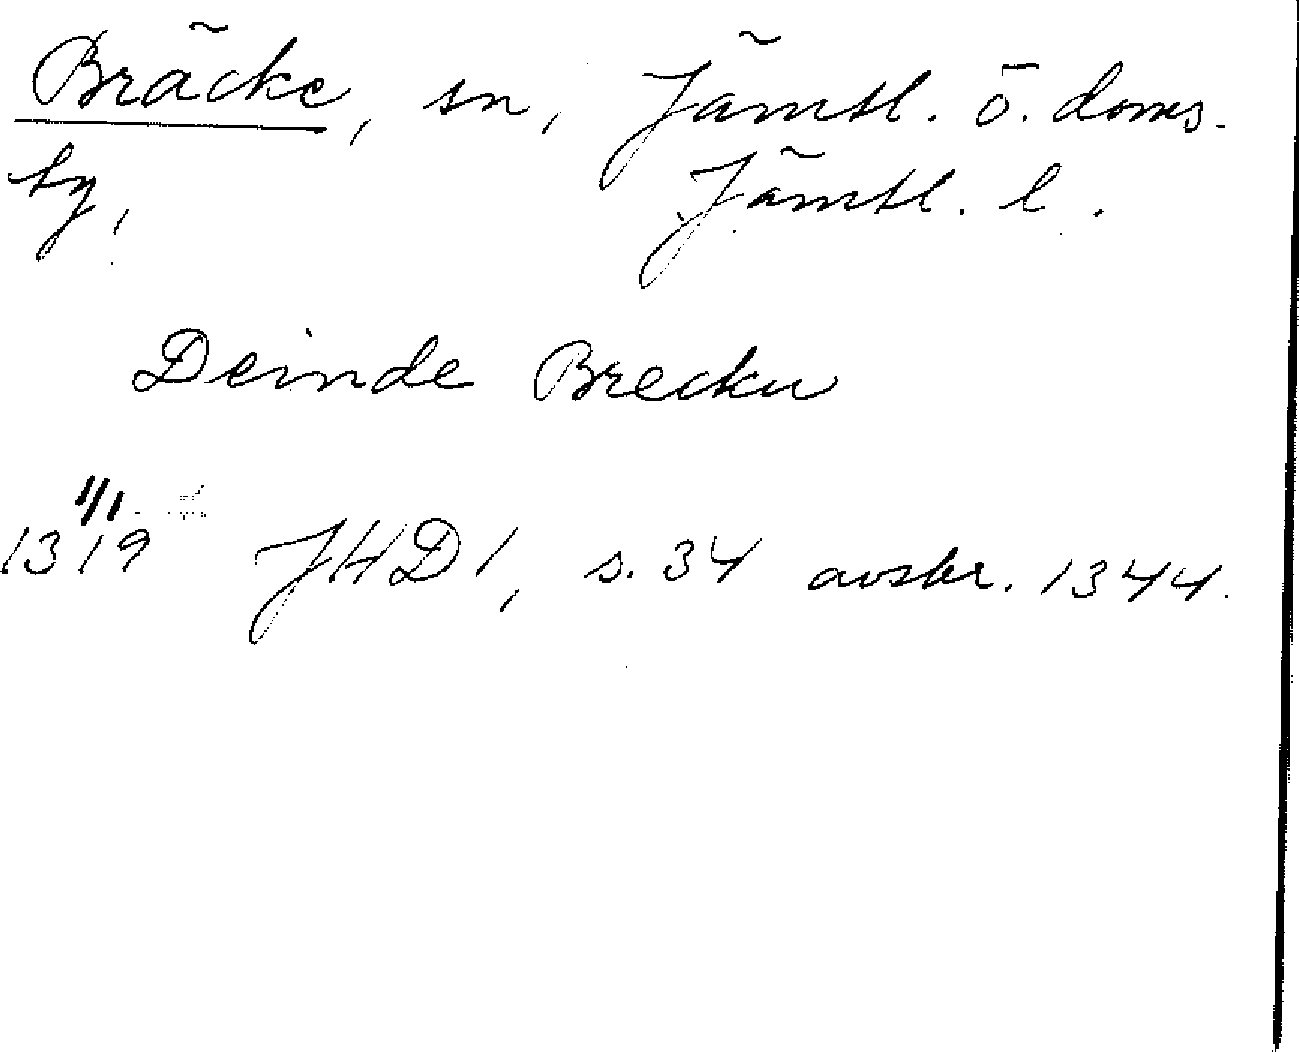 Bräcke, sn, Jämtl. ö. doms.
by, Jämtl. l.
Deinde Brecku
1/1
1319 JHD 1, s. 34 avskr. 1344.